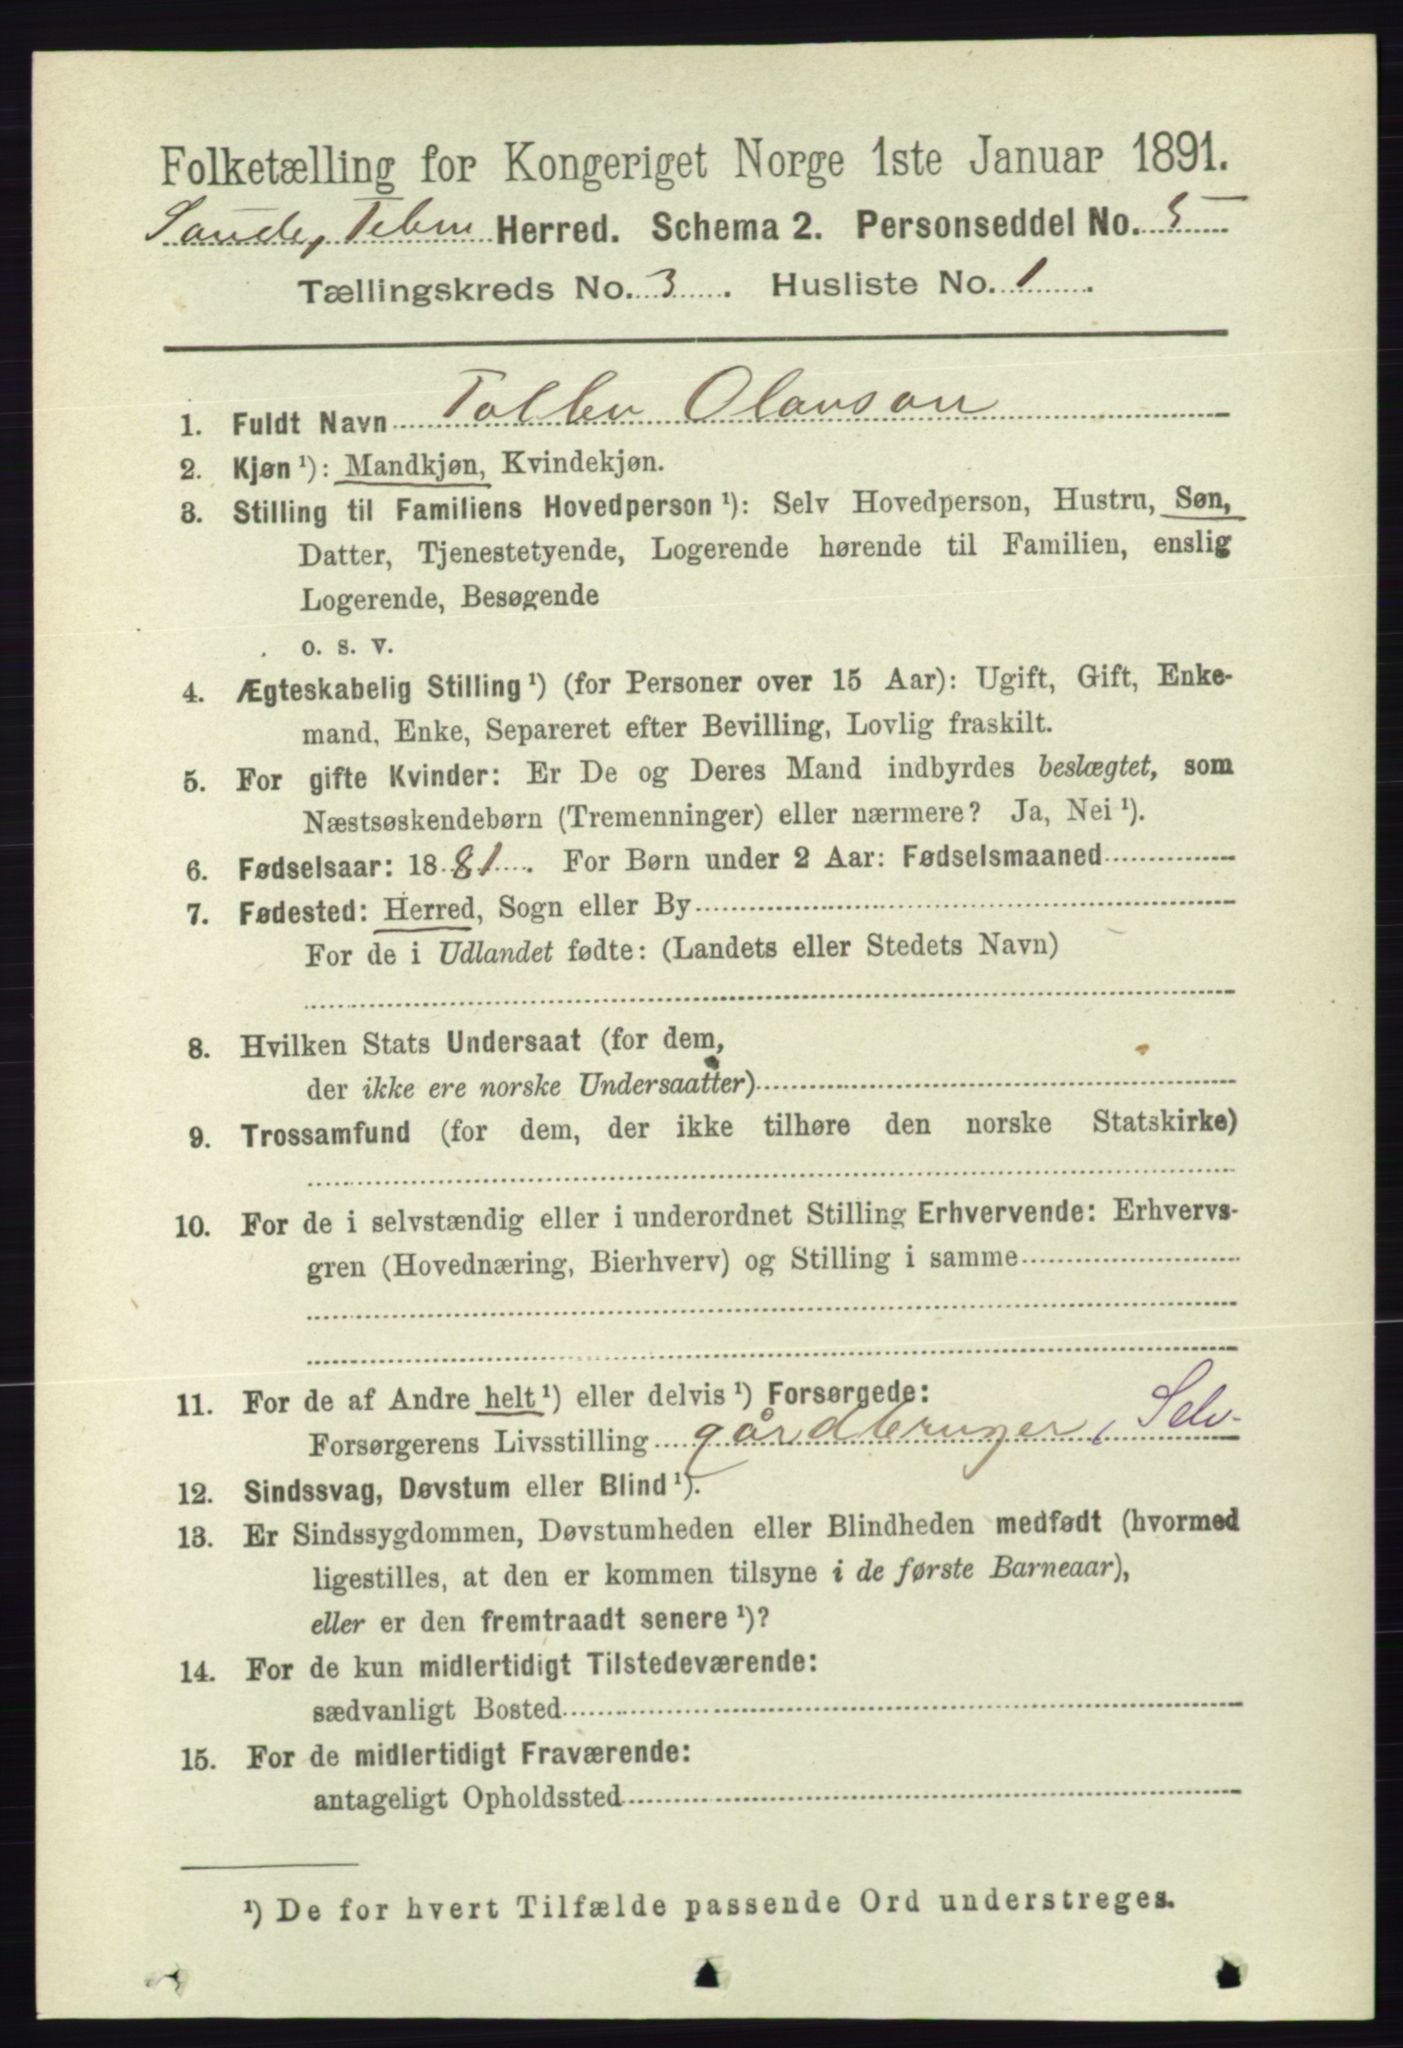 Folketælling for Kongeriget Norge 1ste Januar 1891.
Saude, Telem Herred. Schema 2. Personseddel No. 5
Tællingskreds No. 3. Husliste No. 1.
1. Fuldt Navn Olavson
2. Kjøn ¹): Mandkjøn, Kvindekjøn.
3. Stilling til Familiens Hovedperson ¹): Selv Hovedperson, Hustru, Søn,
Datter, Tjenestetyende, Logerende hørende til Familien, enslig
Logerende, Besøgende
o. s. v.
4. Ægteskabelig Stilling ¹) (for Personer over 15 Aar): Ugift, Gift, Enke-
mand, Enke, Separeret efter Bevilling, Lovlig fraskilt.
5. For gifte Kvinder: Er De og Deres Mand indbyrdes beslægtet, som
Næstsøskendebørn (Tremenninger) eller nærmere? Ja, Nei ¹).
6. Fødselsaar: 1881. For Børn under 2 Aar: Fødselsmaaned
7. Fødested: Herred, Sogn eller By
For de i Udlandet fødte: (Landets eller Stedets Navn)
8. Hvilken Stats Undersaat (for dem,
der ikke ere norske Undersaatter)
9. Trossamfund (for dem, der ikke tilhøre den norske Statskirke)
10. For de i selvstændig eller i underordnet Stilling Erhvervende: Erhvervs-
gren (Hovednæring, Bierhverv) og Stilling i samme
11. For de af Andre helt ¹) eller delvis ¹) Forsørgede:
Forsørgerens Livsstilling gårdbruger, Selv-
12. Sindssvag, Døvstum eller Blind ¹).
13. Er Sindssygdommen, Døvstumheden eller Blindheden medfødt (hvormed
ligestilles, at den er kommen tilsyne i de første Barneaar),
eller er den fremtraadt senere ¹)?
14. For de kun midlertidigt Tilstedeværende:
sædvanligt Bosted
15. For de midlertidigt Fraværende:
antageligt Opholdssted
¹) De for hvert Tilfælde passende Ord understreges.